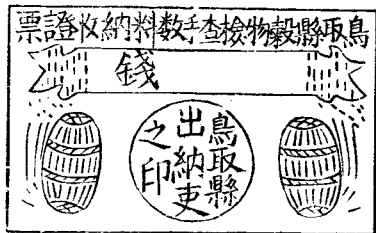 鳥取縣穀物檢查手數料納收證票
錢
鳥取縣
出納吏
之印